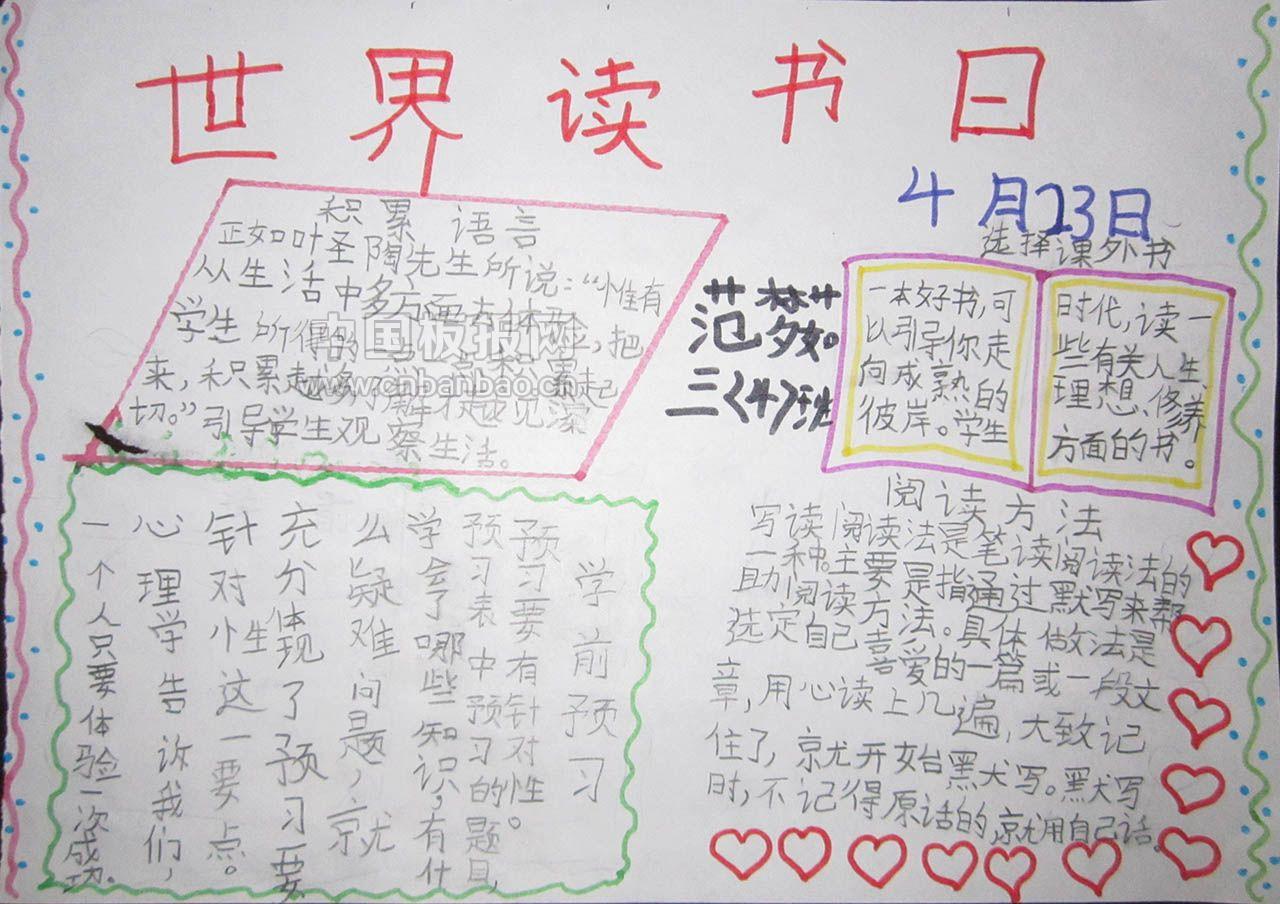 世界读书日
4月23日
积累语言
正如叶圣陶先生所说：“惟有
从生活中多方面去体验，把
学生所得的一点一点积累起
来，积累越多，了解才越见深
切。”引导学生观察生活。
中国板报网
www.cnbanbao.com
范梦
三〈4〉班
选择课外书
一本好书，可
以引导你走
向成熟的
彼岸。学生
时代，读一
些有关人生、
理想、修养
方面的书。
学前预习
预习要有针对性。
预习表中预习的题目，
学会了哪些知识，有什
么疑难问题，就
充分体现了预习要
针对性这一要点。
心理学告诉我们，
一个人只要体验一次成功。
阅读方法
写读阅读法是笔读阅读法的
一种。主要是指通过默写来帮
助阅读方法。具体做法是
选定自己喜爱的一篇或一段文
章，用心读上几遍，大致记
住了，就开始默写。默写
时，不记得原话的，就用自己话。